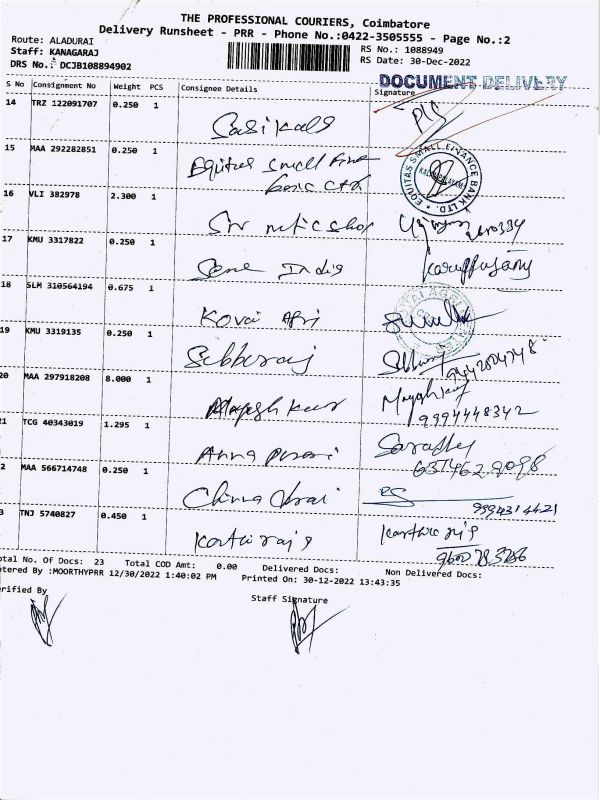 THE PROFESSIONAL COURIERS, Coimbatore
Delivery Runsheet - PRR - Phone No.:0422-3505555 - Page No.:2
Route: ALADURAI
RS No.: 1088949
Staff: KANAGARAJ
RS Date: 30-Dec-2022
DRS No.: DCJB108894902
DOCUMENT DELIVERY
S No Consignment No Weight PCS Consignee Details Signature
14 TRZ 122091707 0.250 1
Sasikala
15 MAA 292282851 0.250 1
Equitas Small Fine
EQUITAS SMALL FINANCE BANK LTD.
16 VLI 382978 2.300 1
Sri
17 KMU 3317822 0.250 1
India
Karuppusamy
18 SLM 310564194 0.675 1
Kovai Agri
19 KMU 3319135 0.250 1
Sibbaraj
20 MAA 297918208 8.000 1
Magesh Kumar
9994448342
21 TCG 40343019 1.295 1
Anna
22 MAA 566714748 0.250 1
Chinna Durai
9994314421
23 TNJ 5740827 0.450 1
Karthi raja
otal No. Of Docs: 23 Total COD Amt: 0.00 Delivered Docs: Non Delivered Docs:
ntered By :MOORTHYPRR 12/30/2022 1:40:02 PM Printed On: 30-12-2022 13:43:35
erified By
Staff Signature